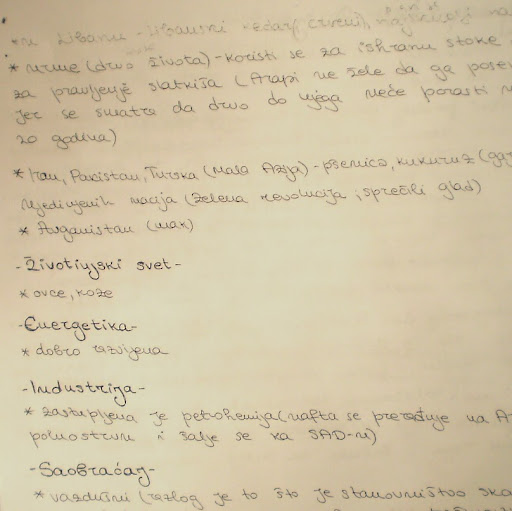 * u Libanu - libanski kedar (crveni),
* urme (drvo života) - koristi se za ishranu stoke
za pravljenje slatkiša (Arapi ne žele da ga pose
jer se smatra da drvo do njega neće porasti
20 godina)
* Iran, Pakistan, Turska (Mala Azija) - pšenica, kukuruz
Ujedinjenih nacija (Zelena revolucija; sprečili glad)
* Avganistan (mak)
- Životinjski svet -
* ovce, koze
- Energetika -
* dobro razvijena
- Industrija -
* zastupljena je petrohemija (nafta se prerađuje na A
poluostrvu i šalje se ka SAD-u)
- Saobraćaj -
* vazdušni (razlog je to što je stanovništvo